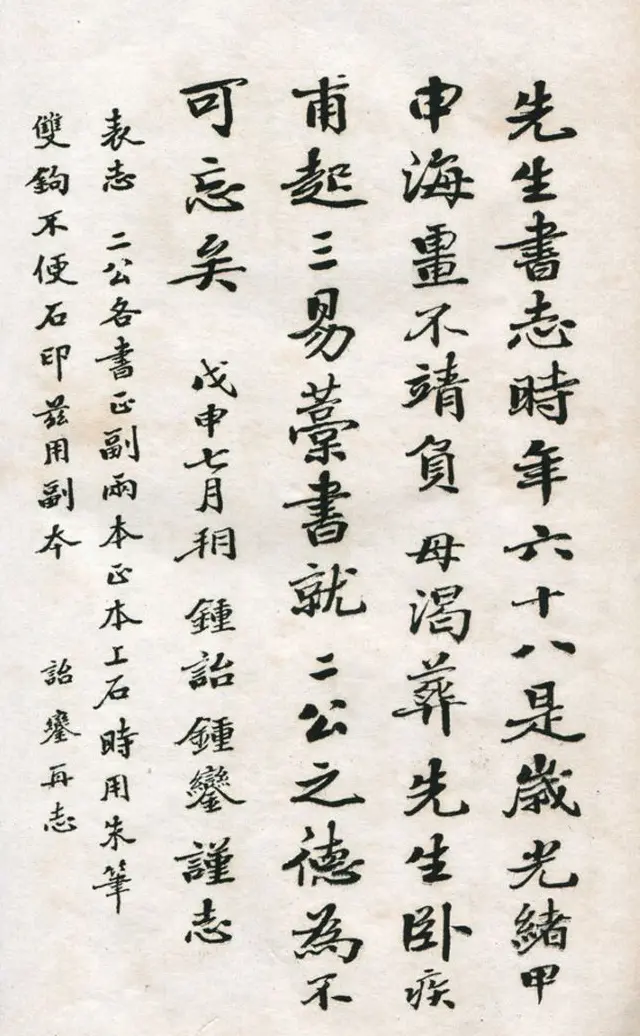 先生書志時年六十八是歲光緒甲
申海畺不靖負 母渴葬先生卧疾
甫起三易藳書就 二公之德為不
可忘矣 戊申七月 鍾詒鍾鑾謹志
表志 二公各書正副兩本正本上石時用朱筆
雙鉤不便石印茲用副本 詒鑾再志